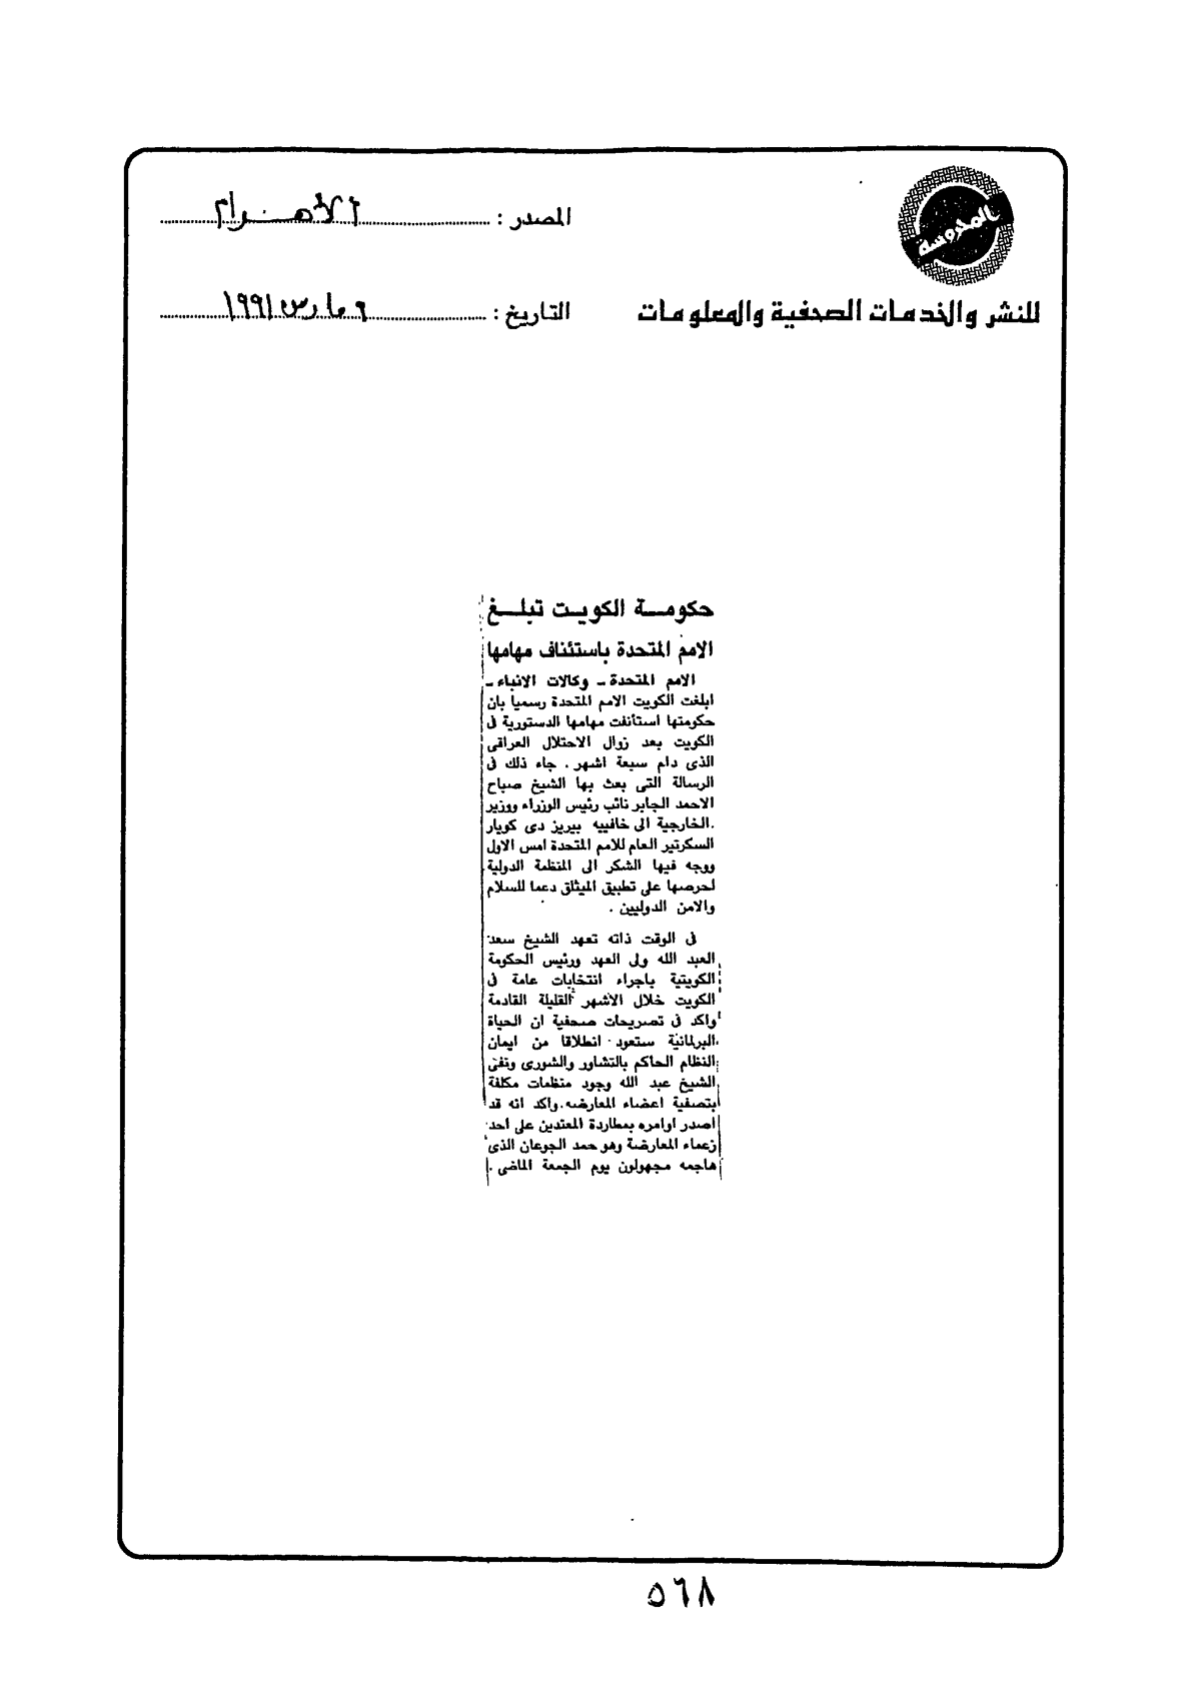 المحروسة
للنشر والخدمات الصحفية والمعلومات
المصدر : الأهرام
التاريخ : ٦ مارس ١٩٩١
حكومة الكويت تبلغ
الامم المتحدة باستئناف مهامها
الامم المتحدة - وكالات الانباء -
ابلغت الكويت الامم المتحدة رسميا بان
حكومتها استأنفت مهامها الدستورية فى
الكويت بعد زوال الاحتلال العراقى
الذى دام سبعة اشهر . جاء ذلك فى
الرسالة التى بعث بها الشيخ صباح
الاحمد الجابر نائب رئيس الوزراء ووزير
الخارجية الى خافييه بيريز دى كويار
السكرتير العام للامم المتحدة امس الاول
ووجه فيها الشكر الى المنظمة الدولية
لحرصها على تطبيق الميثاق دعما للسلام
والامن الدوليين .
فى الوقت ذاته تعهد الشيخ سعد
العبد الله ولى العهد ورئيس الحكومة
الكويتية باجراء انتخابات عامة فى
الكويت خلال الأشهر القليلة القادمة
واكد فى تصريحات صحفية ان الحياة
البرلمانية ستعود انطلاقا من ايمان
النظام الحاكم بالتشاور والشورى ونفى
الشيخ عبد الله وجود منظمات مكلفة
بتصفية اعضاء المعارضه. واكد انه قد
اصدر اوامره بمطاردة المعتدين على احد
زعماء المعارضة وهو حمد الجوعان الذى
هاجمه مجهولون يوم الجمعة الماضى .
٥٦٨